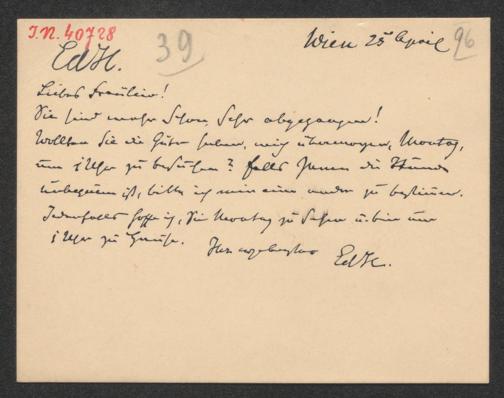 I.N. 40728
39
Wien 25 April
96
EdH.
Liebes Fräulein!
Sie sind mir schon sehr abgegangen!
Wollten Sie die Güte haben, mich übermorgen, Montag,
um 1 Uhr zu besuchen? Falls Ihnen die Stunde
unbequem ist, bitte ich mir eine andere zu bestimmen.
Jedenfalls hoffe ich, Sie Montag zu sehen u. bin um
1 Uhr zu Hause.
Ihr
EdH.